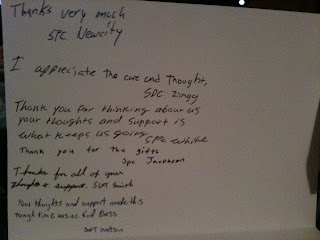 Thanks very much
SPC Newcity
I appreciate the care and thought,
SPC Zingg
Thank you for thinking about us
your thoughts and support is
what keeps us going SPC White
Thank you for the gifts
Spc Jacobson
Thanks for all of your
thoughts & support. SGT Smith
Your thoughts and support made this
tough time easier. God Bless
SGT Watson